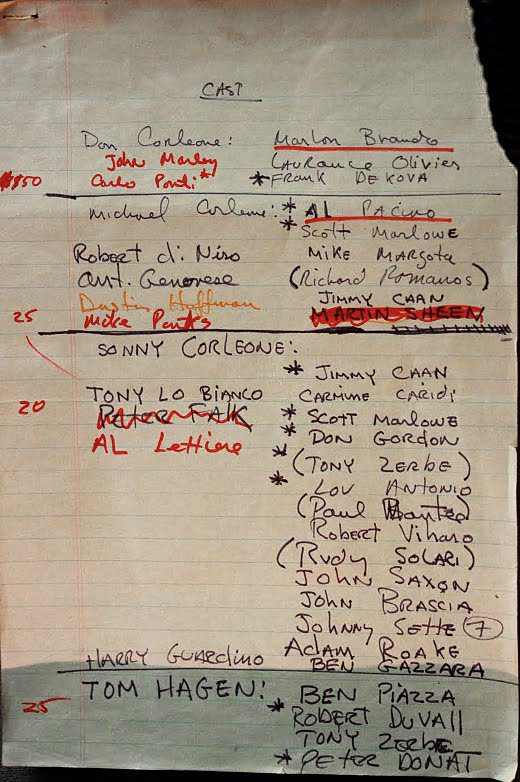 CAST
Don Corleone: Marlon Brando
John Marley Laurance Olivier
Carlo Ponti * * FRANK DE KOVA
Michael Corleone: * AL PACINO
* Scott Marlowe
Robert di Niro MIKE MARGOTA
Ant. Genovese (Richard Romanos)
Dustin Hoffman JIMMY CAAN
25 Mike Parks MARTIN SHEEN
SONNY CORLEONE:
* JIMMY CAAN
TONY LO BIANCO CARMINE CARIDI
20 Peter Falk * SCOTT MARLOWE
AL Lettiere * DON GORDON
* (TONY ZERBE)
* LOU ANTONIO
(Paul)
Robert Viharo
(RUDY SOLARI)
JOHN SAXON
JOHN BRASCIA
Johnny SETTE 7
Adam ROAKE
HARRY GUARDINO BEN GAZZARA
TOM HAGEN: BEN PIAZZA
25 * ROBERT DUVALL
TONY ZERBE
* PETER DONAT